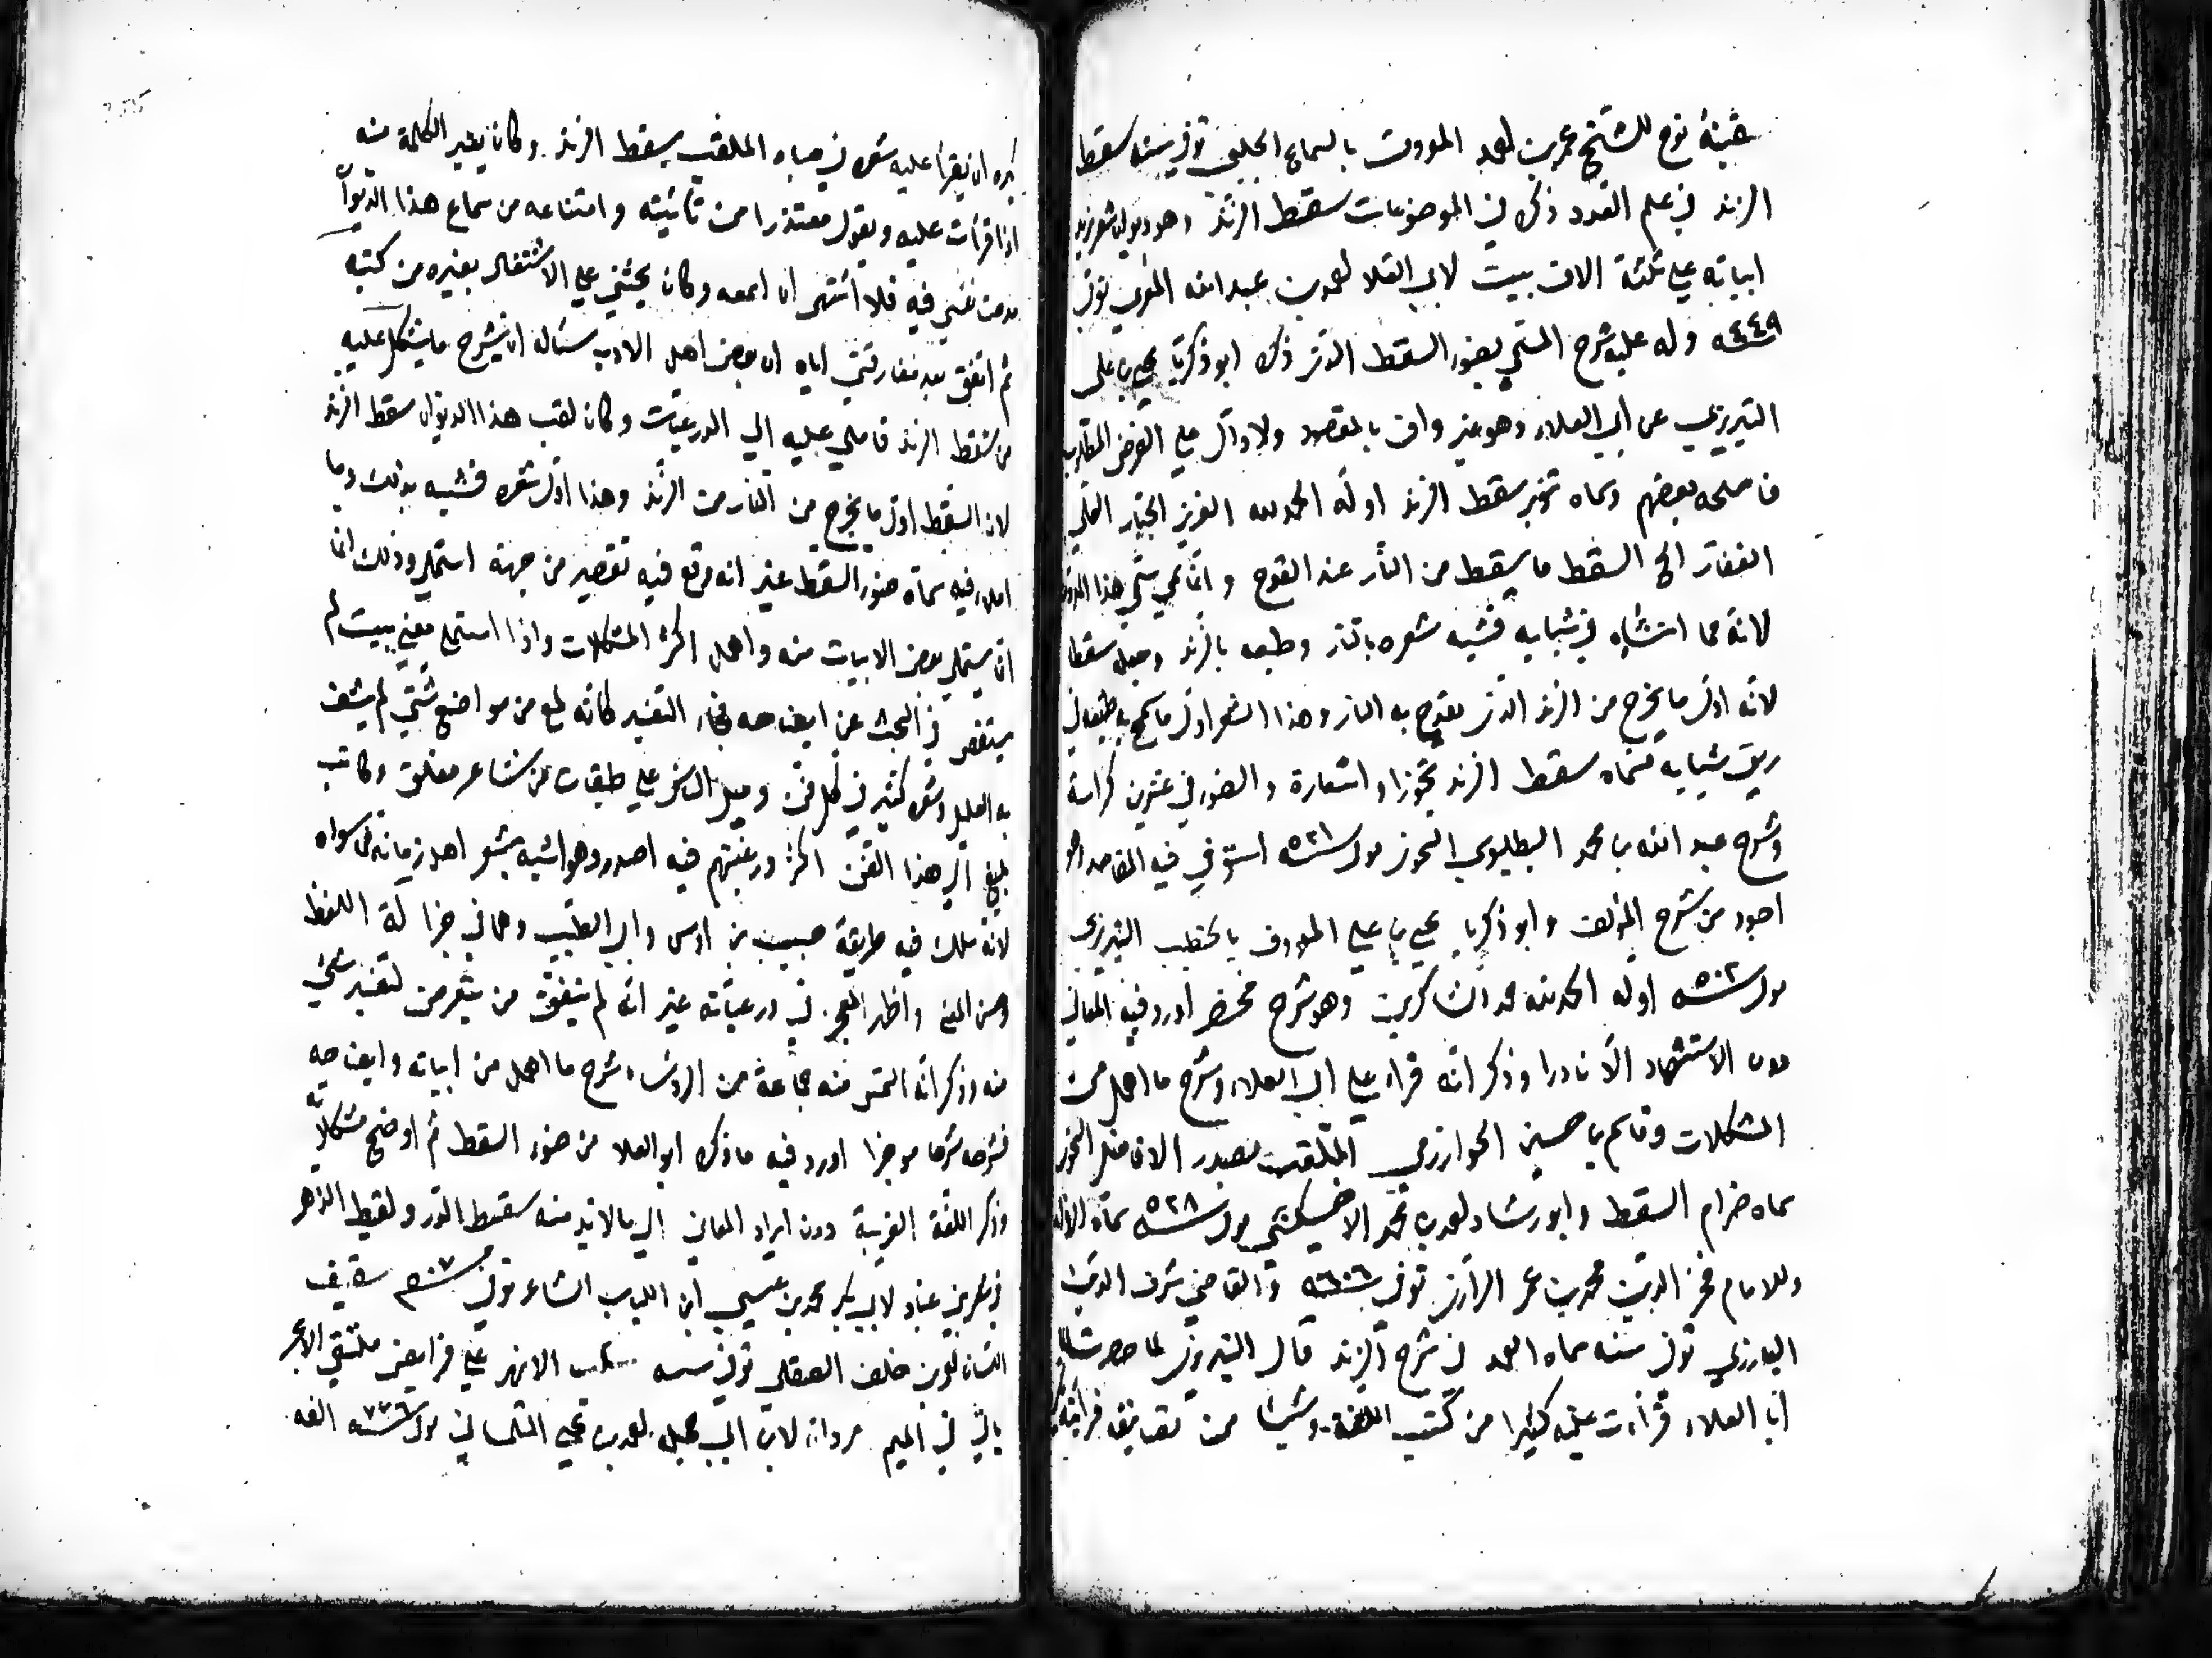 سفينة نوح للشيخ عمر بن احمد المعروف بالسماع الحلبي توفي سنه سقط
الزند في علم العدد ذكره في الموضوعات سقط الزند وهو ديوان شعر تزيد
ابياته على ثلثة الاف بيت لابي العلا احمد بن عبد الله المعري توفي
سنة ٤٤٩ وله عليه شرح المسمى بضوء السقط الذي ذكره ابو زكريا يحيى بن على
التبريزي عن ابي العلاء وهو غير واف بالمقصود ولا دال على الغرض المطلوب
فاصلحه بعضهم وسماه تنوير سقط الزند اوله الحمد لله العزيز الجبار العلي
الغفار الخ السقط ما يسقط من النار عند القدح وانما سمي هذا الديوان
لانه مما انشاه في شبابه فشبه شعره بالنار وطبعه بالزند وجعله سقطا
لانه اول ما يخرج من الزند الذي يقدح به النار وهذا الشعر اول ما سمح به طبعه في
ريق شبابه فسماه سقط الزند تجوزا واستعارة والضوء في عشرين كراسة
وشرح عبد الله بن محمد البطليوسي النحوي سنة ٥٢١ استوفي فيه المقاصد وهو
اجود من شرح المؤلف وابو زكريا يحيى بن علي المعروف بالخطيب التبريزي
سنة ٥٠٢ اوله الحمد لله حمد الشاكرين وهو شرح مختصر اورد فيه المعاني
دون الاستشهاد الا نادرا وذكر انه قراه على ابي العلاء وشرح ما اهمل من
المشكلات وقاسم بن حسين الخوارزمي الملقب بصدر الافاضل النحوي
سماه ضرام السقط وابو رشاد احمد بن محمد الاخسيكتي سنة ٥٢٨ سماه الزوائد
وللامام فخر الدين محمد بن عمر الرازي توفي سنة ٦٠٦ والقاضي شرف الدين
البارزي توفي سنه سماه العمد في شرح الزند قال التبريزي لما حضرت
ابا العلاء قرأت عليه كثيرا من كتب اللغة وشيئا من تصانيفه فرايته
يكره ان يقرأ عليه شعره في صباه الملقب بسقط الزند وكان يغير الكلمة منه
اذا قرأت عليه ويقول معتذرا من تأبيه وامتناعه من سماع هذا الديوان
مدحت نفسي فيه فلا اشتهى ان اسمعه وكان يحثني على الاشتغال بغيره من كتبه
ثم اتفق بعد مفارقتي اياه ان بعض اهل الادب سئال ان يشرح ما يشكل عليه
من سقط الزند فاملي عليه الي الدرعيات وكان لقب هذا الديوان سقط الزند
لان السقط اول ما يخرج من النار من الزند وهذا اول شعره فشبه بذلك وما
املاه فيه سماه ضوء السقط غير انه وقع فيه تقصير من جهة المستملي وذلك انما
ان يستملي بعض الابيات منه واهمل اكثر المشكلات واذا استملى معني بيت لم
يستقص في البحث عن ايضاحه فجاء التفسير كانه لمع من مواضع شتي لم يشف
به العليل وشعره كثير في كل فن وميل الناس على طبقاتهم من شاعر مفلق وكاتب
بليغ الي هذا الفن اكثر ورغبتهم فيه اصدق وهو اشبه بشعر اهل زمانه مما سواه
لانه سلك فيه طريقة حبيب بن اوس وابي الطيب وهما في جزالة اللفظ
وحسن المعنى واظهر المعجز في درعياته غير انه لم يتفق من يتعرض لتفسير شيئ
منه وذكر انه التمس منه جماعة من الروساء شرح ما اهمل من ابياته وايضاحه
فشرحه شرحا موجزا اورد فيه ما ذكره ابو العلا من ضوء السقط ثم اوضح مشكلاته
وذكر اللغة الغريبة دون ايراد المعاني الي ما لابد منه سقيط الدرر ولقيط الزهر
في شعر بني عباد لابي بكر محمد بن عيسى ابن اللبانه الشاعر توفي سنة ٥٠٧
لعمر بن خلف الصقلي توفي سنه سكب الانهر على فرايض ملتقي الابحر
ياتي في الميم سردان لابن ابي حجله احمد بن يحيي التلمساني سنة ٧٧٦ الفه